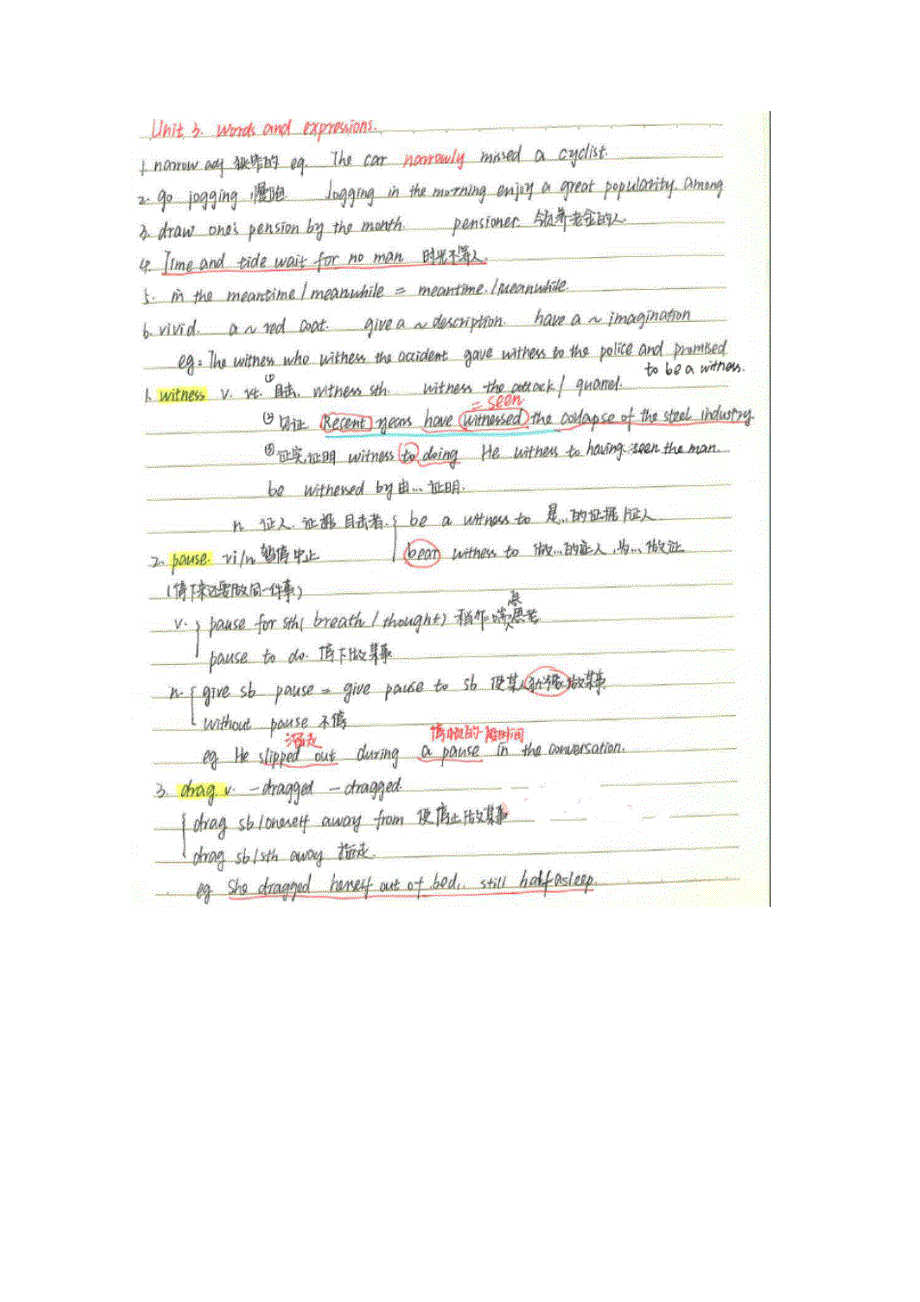 Unit 3. Words and expressions.
1. narrow adj 狭窄的 eg. The car narrowly missed a cyclist.
2. go jogging 慢跑 Jogging in the morning enjoy a great popularity among
3. draw one's pension by the month pensioner. 领养老金的人.
4. Time and tide wait for no man 时光不等人.
5. in the meantime / meanwhile = meantime / meanwhile
6. vivid. a ~ red coat. give a ~ description. have a ~ imagination
eg: The witness who witness the accident gave witness to the police and promised
to be a witness.
1. witness v. vt. ① 目击. witness sth. witness the attack / quarrel.
= seen
② 见证 Recent years have witnessed the collapse of the steel industry.
③ 证实, 证明 witness to doing He witness to having seen the man.
be witnessed by 由... 证明.
n. 证人. 证据 目击者. be a witness to 是...的证据/证人
bear witness to 做...的证人, 为...做证
2. pause. vi/n 暂停 中止
(停下来还要做同一件事)
v. pause for sth ( breath / thought ) 稍作喘息 思考
pause to do. 停下做某事
n. give sb pause = give pause to sb 使某人犹豫做某事
without pause 不停
溜走 停顿的一段时间
eg He slipped out during a pause in the conversation.
3. drag v. - dragged - dragged.
drag sb/oneself away from 使停止做某事
drag sb/sth away 拖走.
eg She dragged herself out of bed, still half asleep.